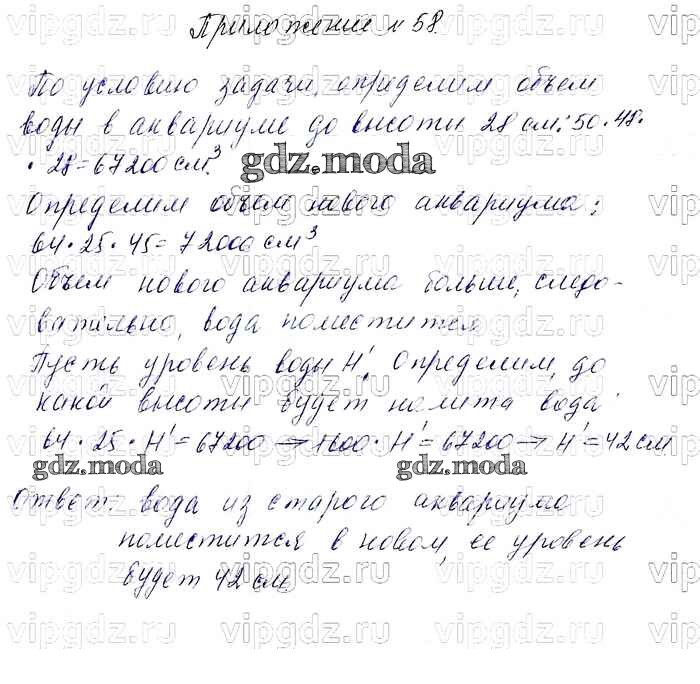 Приложение № 58.
По условию задачи, определим объем
воды в аквариуме до высоты 28 см: 50·48·
·28=67200 см³.
gdz.moda
Определим объем нового аквариума:
64·25·45=72000 см³
Объем нового аквариума больше, следо-
вательно, вода поместится.
Пусть уровень воды H'. Определим, до
какой высоты будет налита вода:
64·25·H'=67200→1600·H'=67200→H'=42 см
gdz.moda gdz.moda
Ответ: вода из старого аквариума
поместится в новом, ее уровень
будет 42 см.
vipgdz.ru vipgdz.ru vipgdz.ru